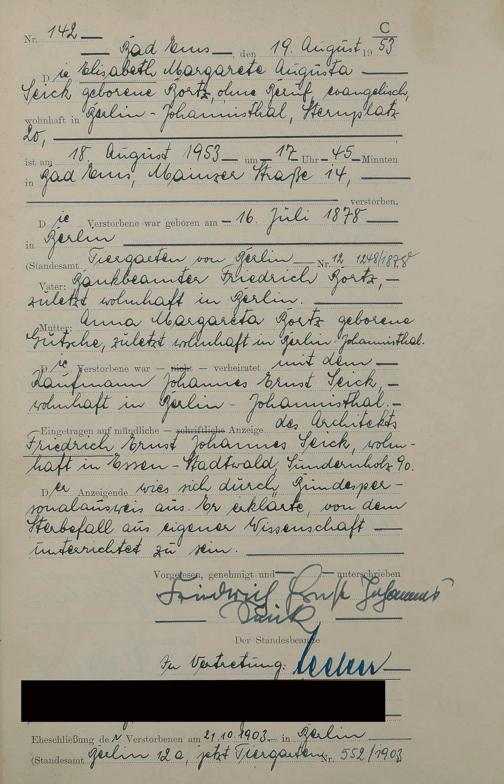 C
Nr. 142
Bad Ems, den 19. August 1953
Die Elisabeth Margarete Augusta
Seick geborene Bortz, ohne Beruf, evangelisch,
wohnhaft in Berlin-Johannisthal, Sternplatz
20,
ist am 18. August 1953 um 17 Uhr 45 Minuten
in Bad Ems, Mainzer Straße 14,
verstorben.
Die Verstorbene war geboren am 16. Juli 1878
in Berlin
(Standesamt Tiergarten von Berlin Nr. 12 1248/1878
Vater: Bankbeamter Friedrich Bortz,
zuletzt wohnhaft in Berlin.
Mutter: Anna Margareta Bortz geborene
Gütsche, zuletzt wohnhaft in Berlin-Johannisthal.
Die Verstorbene war — nicht — verheiratet mit dem
Kaufmann Johannes Ernst Seick,
wohnhaft in Berlin-Johannisthal.
Eingetragen auf mündliche — schriftliche Anzeige des Architekts
Friedrich Ernst Johannes Seick, wohn-
haft in Essen-Stadtwald, Sundernholz 90.
Der Anzeigende wies sich durch Bundesper-
sonalausweis aus. Er erklärte, von dem
Sterbefall aus eigener Wissenschaft
unterrichtet zu sein.
Vorgelesen, genehmigt und unterschrieben
Friedrich Ernst Johannes
Seick
Der Standesbeamte
In Vertretung:
Eheschließung der Verstorbenen am 21.10.1903 in Berlin
(Standesamt Berlin 12a, jetzt Tiergarten Nr. 552/1903